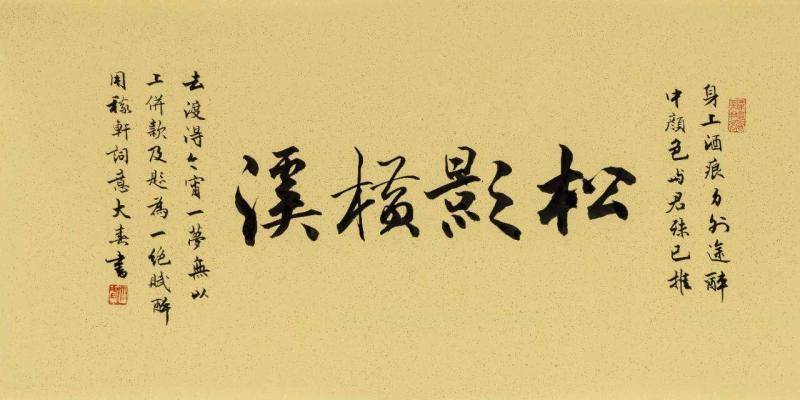 身上酒痕外途醉
中顏色与君殊已推
松影橫溪
去渡得今宵一夢無以
上併款及題為一絕賦醉
用稼軒詞意大春書